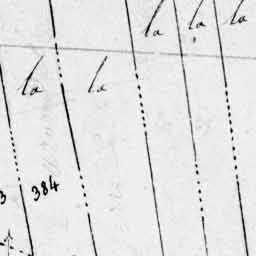 la la la
la la
3 384